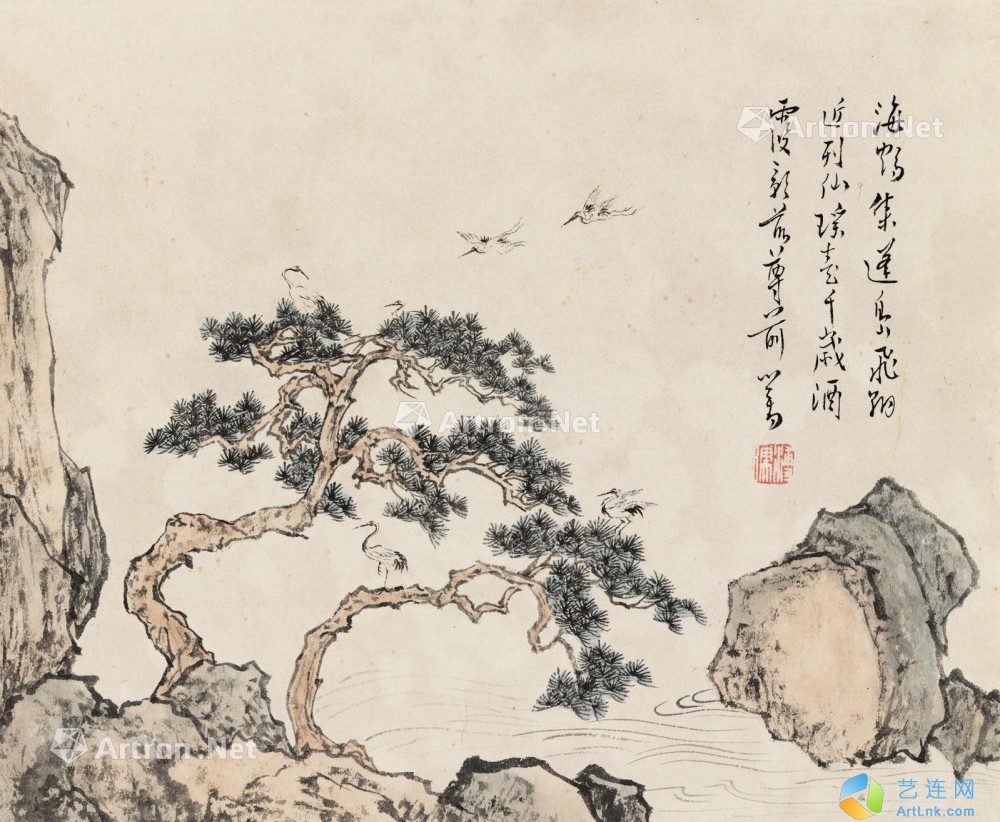 海鶴集蓬島飛翔
近列仙瑤臺千歲酒
霞影落尊前 心畬
Artron.Net
Artron.Net
Artron.Net
艺连网
ArtLnk.com